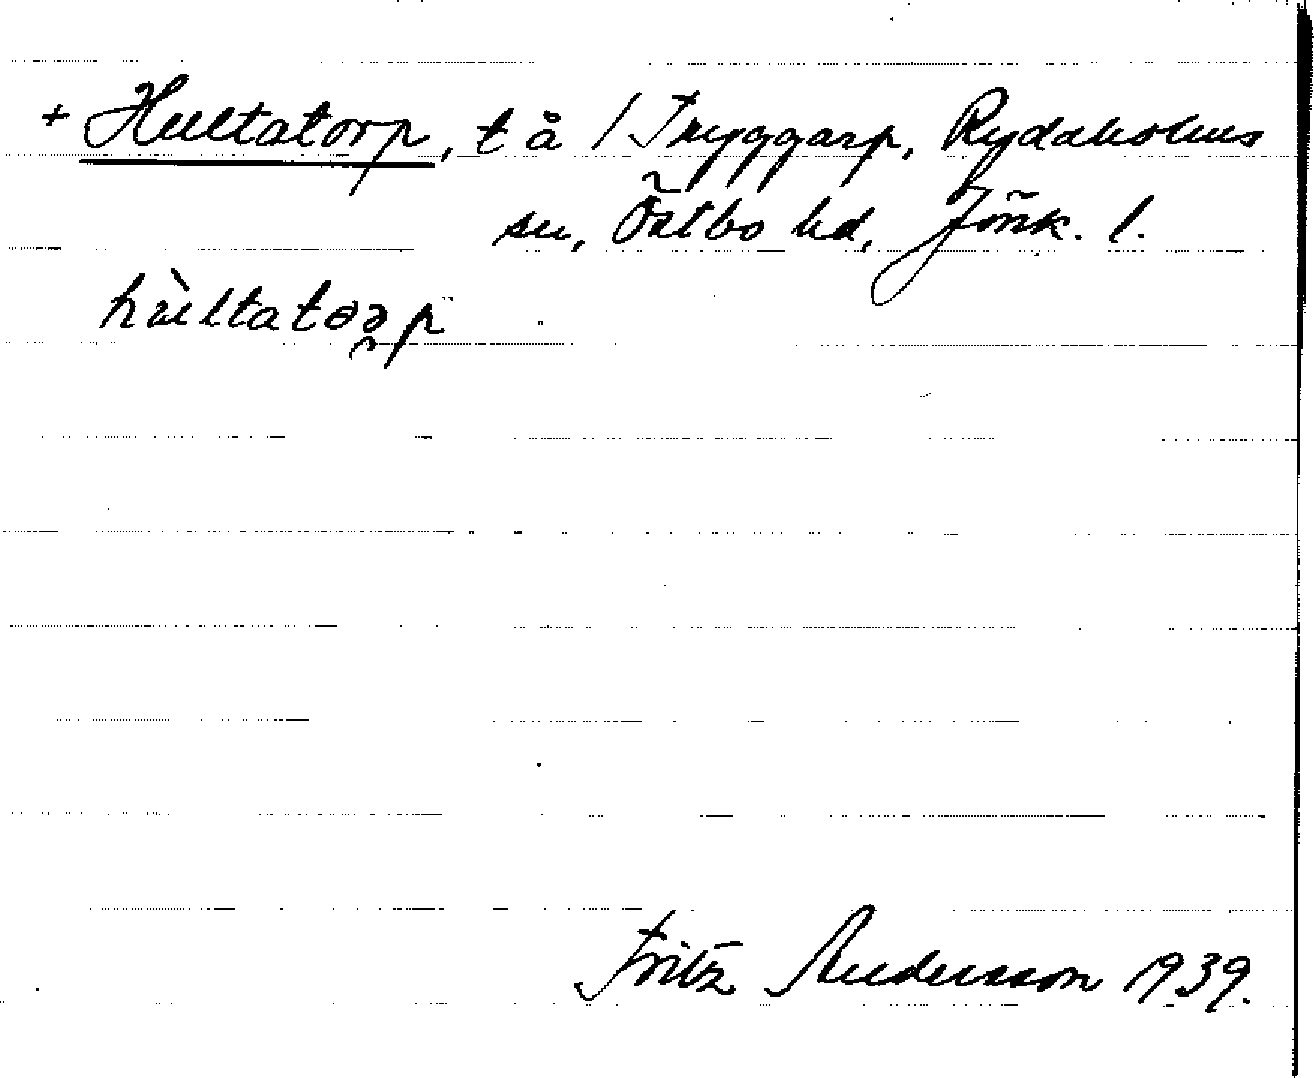 + Hultatorp, t å / Tryggarp, Rydaholms
sn, Östbo hd, Jönk. l.
hùltatoə̯p
Fritz Andersson 1939.